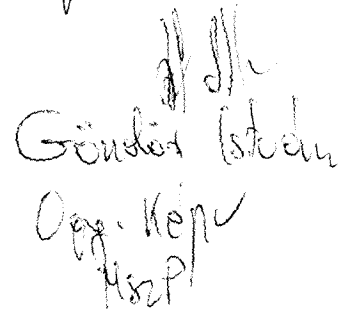 Göndör István
Ogy. Képv
MSZP